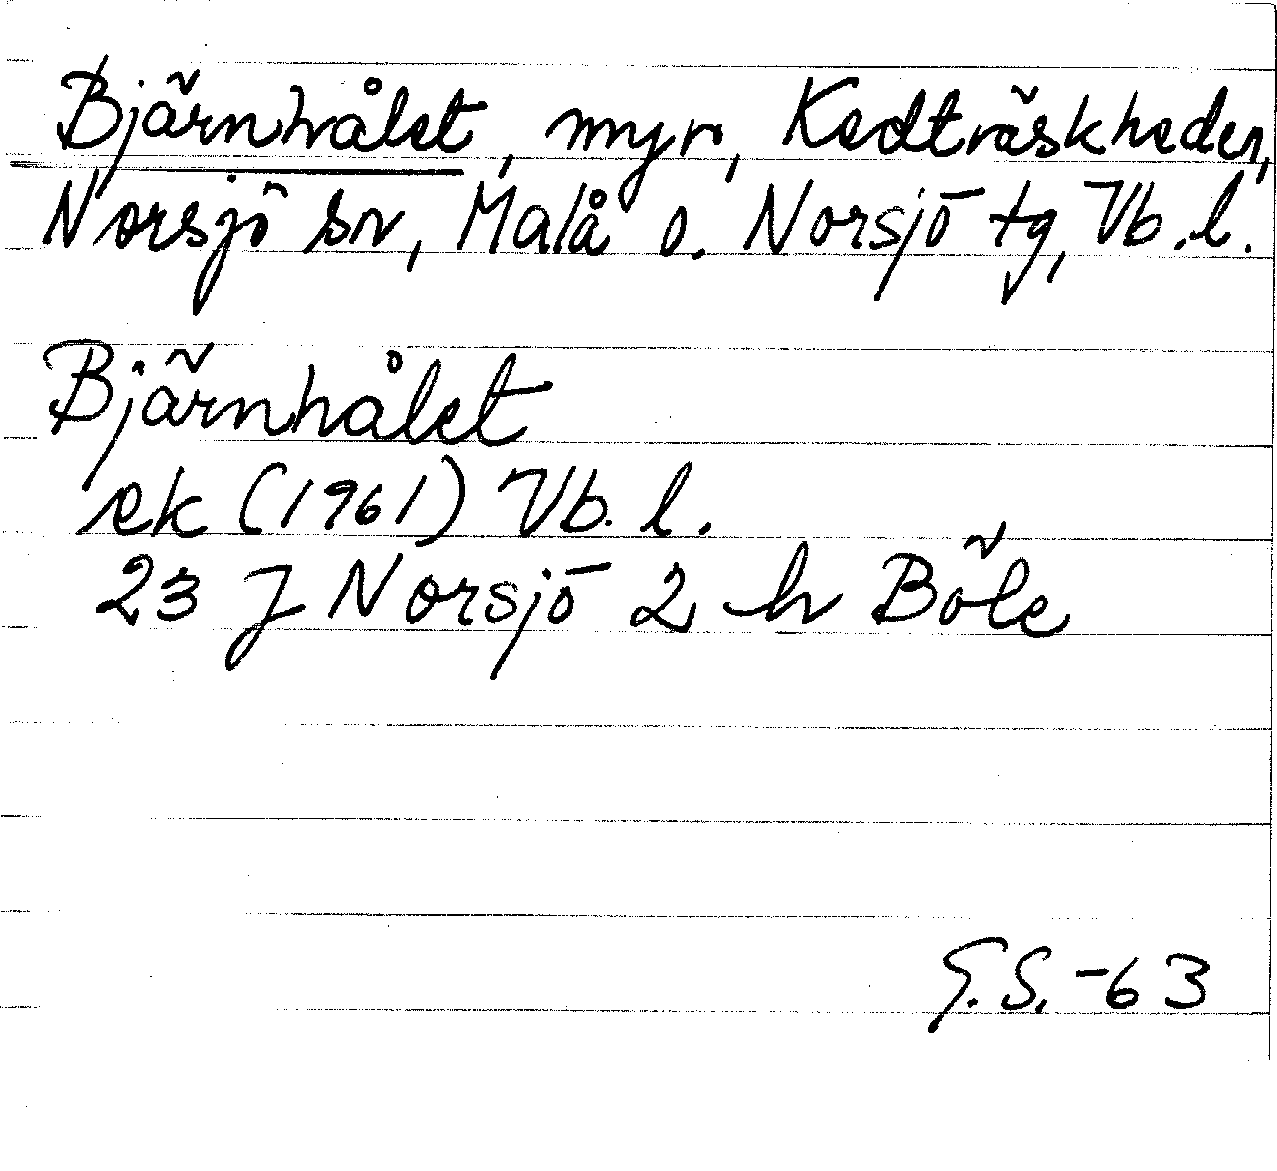 Bjärnhålet, myr, Kedträskheden,
Norsjö sn, Malå o. Norsjö tg, Vb.l.
Bjärnhålet
ek (1961) Vb. l.
23 J Norsjö 2 h Böle
G.S. -63